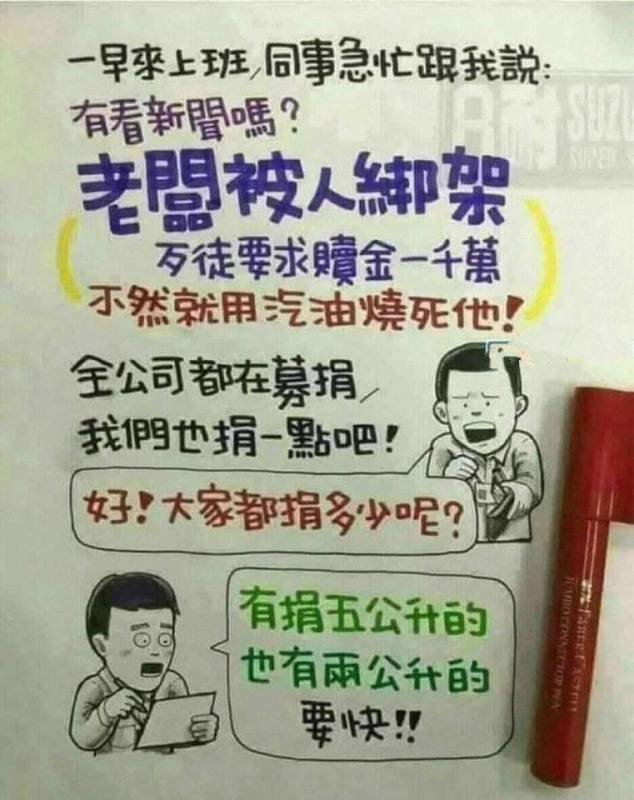 一早來上班,同事急忙跟我說:
有看新聞嗎?
老闆被人綁架
歹徒要求贖金一千萬
不然就用汽油燒死他!
全公司都在募捐,
我們也捐一點吧!
好!大家都捐多少呢?
有捐五公升的
也有兩公升的
要快!!
SUZU
SUPER
FABER-CASTELL